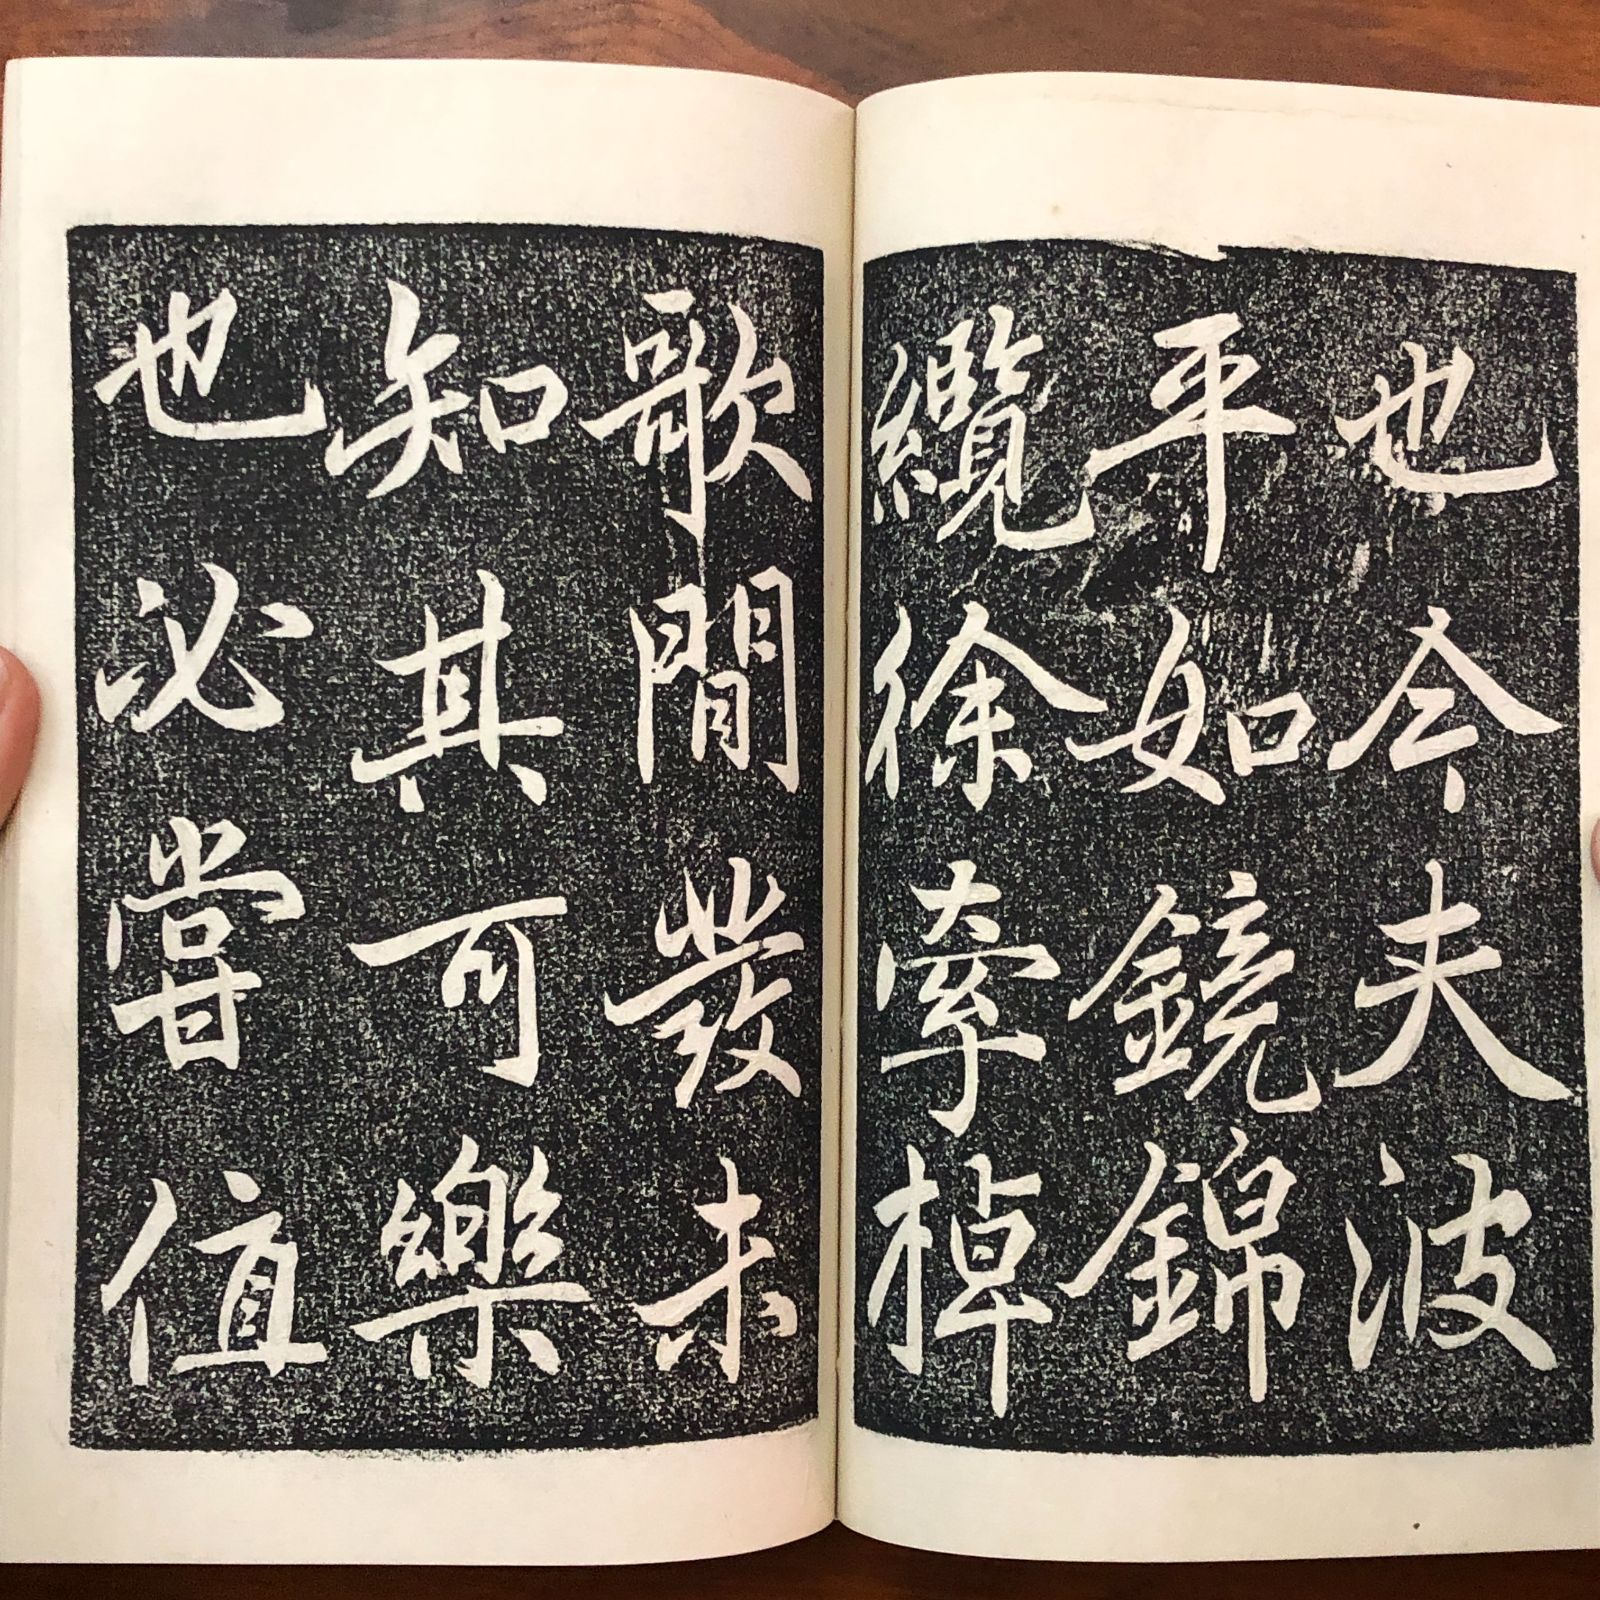 也今夫波
平如鏡錦
纜徐牽棹
歌間發未
知其可樂
也必嘗值